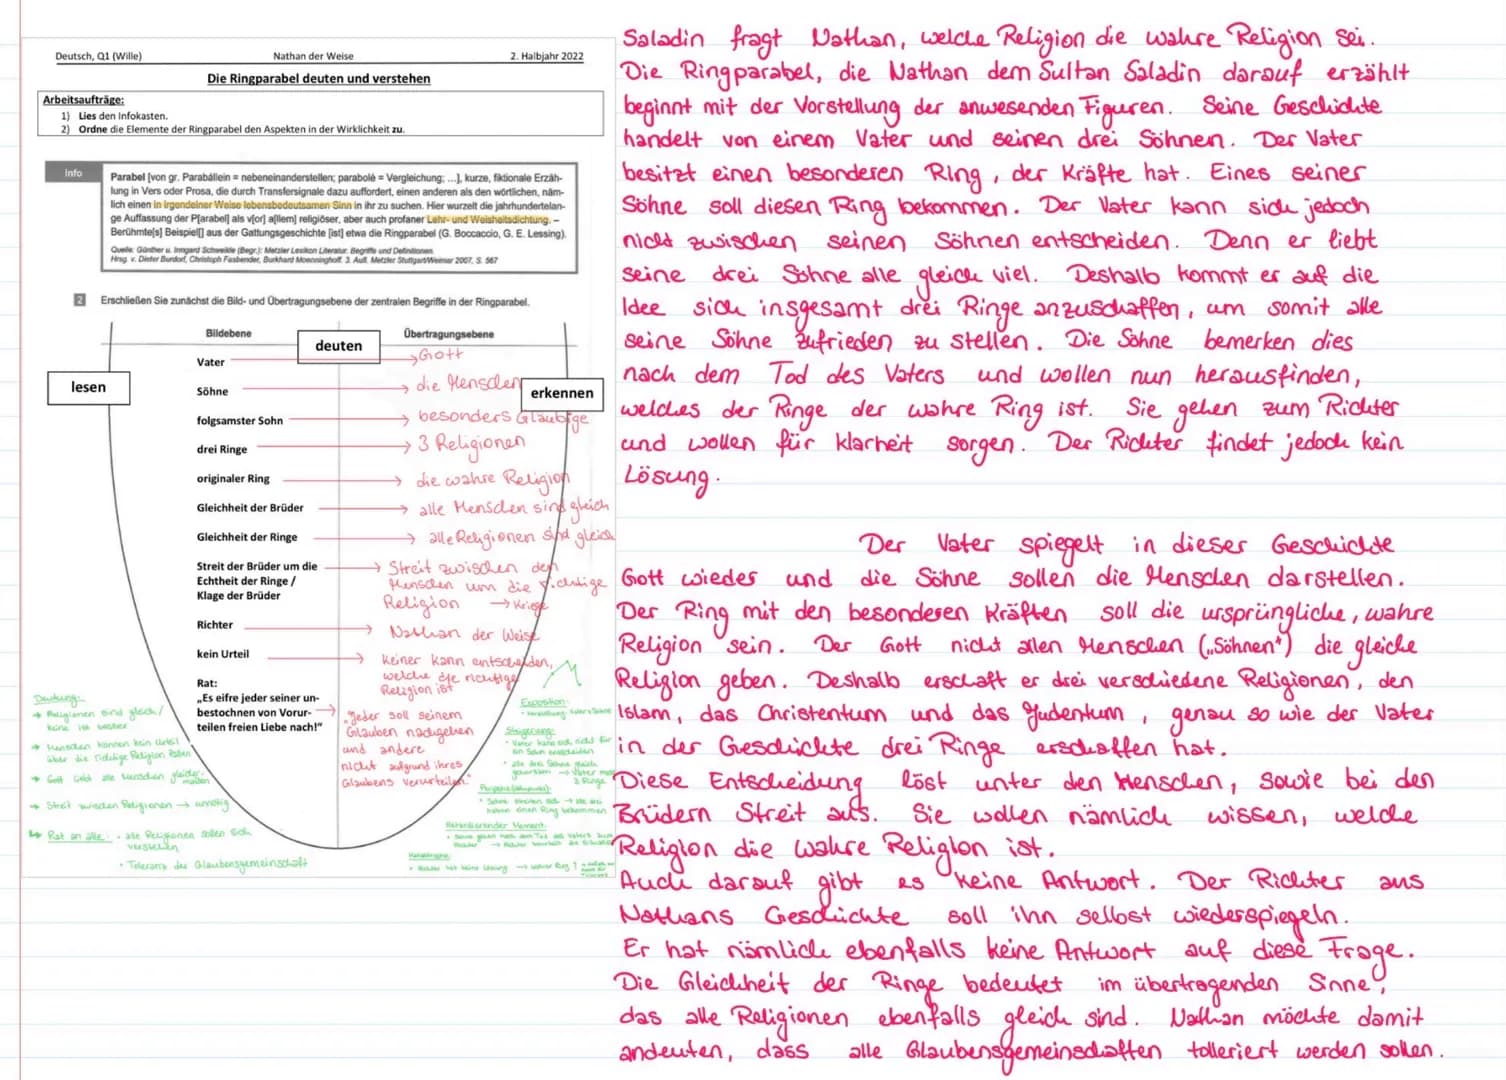 Deutsch, Q1 (Wille) Nathan der Weise 2. Halbjahr 2022
Die Ringparabel deuten und verstehen
Arbeitsaufträge:
1) Lies den Infokasten.
2) Ordne die Elemente der Ringparabel den Aspekten in der Wirklichkeit zu.
Info
Parabel [von gr. Parabállein = nebeneinanderstellen; parabolé = Vergleichung; ...], kurze, fiktionale Erzäh-
lung in Vers oder Prosa, die durch Transfersignale dazu auffordert, einen anderen als den wörtlichen, näm-
lich einen in irgendeiner Weise lebensbedeutsamen Sinn in ihr zu suchen. Hier wurzelt die jahrhundertelan-
ge Auffassung der P[arabel] als v[or] a[llem] religiöser, aber auch profaner Lehr- und Weisheitsdichtung. –
Berühmte[s] Beispiel[] aus der Gattungsgeschichte [ist] etwa die Ringparabel (G. Boccaccio, G. E. Lessing).
Quelle: Günther u. Irmgard Schweikle (Begr.): Metzler Lexikon Literatur. Begriffe und Definitionen.
Hrsg. v. Dieter Burdorf, Christoph Fasbender, Burkhard Moenninghoff. 3. Aufl. Metzler Stuttgart/Weimar 2007, S. 567
2 Erschließen Sie zunächst die Bild- und Übertragungsebene der zentralen Begriffe in der Ringparabel.
Bildebene deuten Übertragungsebene
lesen
erkennen
Vater → Gott
Söhne → die Menschen
folgsamster Sohn → besonders Gläubige
drei Ringe → 3 Religionen
originaler Ring → die wahre Religion
Gleichheit der Brüder → alle Menschen sind gleich
Gleichheit der Ringe → alle Religionen sind gleich
Streit der Brüder um die
Echtheit der Ringe /
Klage der Brüder
→ Streit zwischen den
Menschen um die richtige
Religion → Kriege
Richter → Nathan der Weise
kein Urteil → keiner kann entscheiden,
welche die richtige
Religion ist
Rat:
„Es eifre jeder seiner un-
bestochnen von Vorur-
teilen freien Liebe nach!“
→ „Jeder soll seinem
Glauben nachgehen
und andere
nicht aufgrund ihres
Glaubens verurteilen."
Deutung:
→ Religionen sind gleich /
keine ist besser
→ Menschen können kein Urteil
über die richtige Religion fällen
→ Gott liebt alle Menschen gleicher-
maßen
→ Streit zwischen Religionen → unnötig
↳ Rat an alle: • alle Religionen sollen sich
verstehen
• Toleranz der Glaubensgemeinschaft
Exposition:
• Vorstellung: Vater + Söhne
Steigerung:
• Vater kann sich nicht für
ein Sohn entscheiden
• alle drei Söhne gleich
→ Vater
3 Ringe
• Söhne streiten sich → alle drei
einen Ring bekommen
Retardierender Moment:
• Söhne gehen nach dem Tod des Vaters zum
Richter → Richter
Katastrophe:
• Richter hat keine Lösung → wahrer Ring?
Saladin fragt Nathan, welche Religion die wahre Religion sei.
Die Ringparabel, die Nathan dem Sultan Saladin darauf erzählt
beginnt mit der Vorstellung der anwesenden Figuren. Seine Geschichte
handelt von einem Vater und seinen drei Söhnen. Der Vater
besitzt einen besonderen Ring, der Kräfte hat. Eines seiner
Söhne soll diesen Ring bekommen. Der Vater kann sich jedoch
nicht zwischen seinen Söhnen entscheiden. Denn er liebt
seine drei Söhne alle gleich viel. Deshalb kommt er auf die
Idee sich insgesamt drei Ringe anzuschaffen, um somit alle
seine Söhne zufrieden zu stellen. Die Söhne bemerken dies
nach dem Tod des Vaters und wollen nun herausfinden,
welches der Ringe der wahre Ring ist. Sie gehen zum Richter
und wollen für klarheit sorgen. Der Richter findet jedoch kein
Lösung.
Der Vater spiegelt in dieser Geschichte
Gott wieder und die Söhne sollen die Menschen darstellen.
Der Ring mit den besonderen Kräften soll die ursprüngliche, wahre
Religion sein. Der Gott nicht allen Menschen („Söhnen") die gleiche
Religion geben. Deshalb erschaft er drei verschiedene Religionen, den
Islam, das Christentum und das Judentum, genau so wie der Vater
in der Geschichte drei Ringe erschaffen hat.
Diese Entscheidung löst unter den Menschen, sowie bei den
Brüdern Streit aus. Sie wollen nämlich wissen, welche
Religion die wahre Religion ist.
Auch darauf gibt es keine Antwort. Der Richter aus
Nathans Geschichte soll ihn selbst wiederspiegeln.
Er hat nämlich ebenfalls keine Antwort auf diese Frage.
Die Gleichheit der Ringe bedeutet im übertragenden Sinne,
das alle Religionen ebenfalls gleich sind. Nathan möchte damit
andeuten, dass alle Glaubensgemeinschaften tolleriert werden sollen.